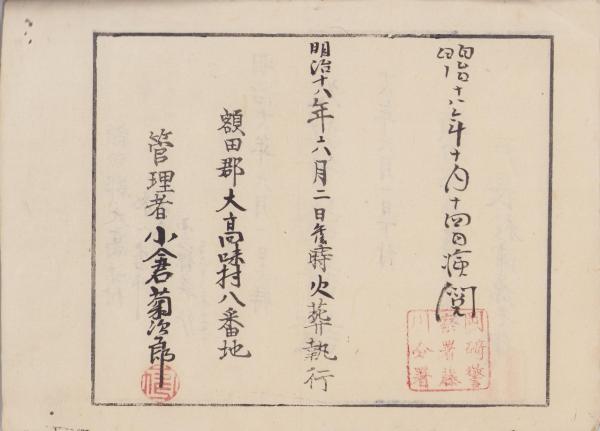 明治十八年十月十四日検閲
岡崎警
察署藤
川分署
明治十八年六月二日 時火葬執行
額田郡大高味村八番地
管理者 小倉菊次郎